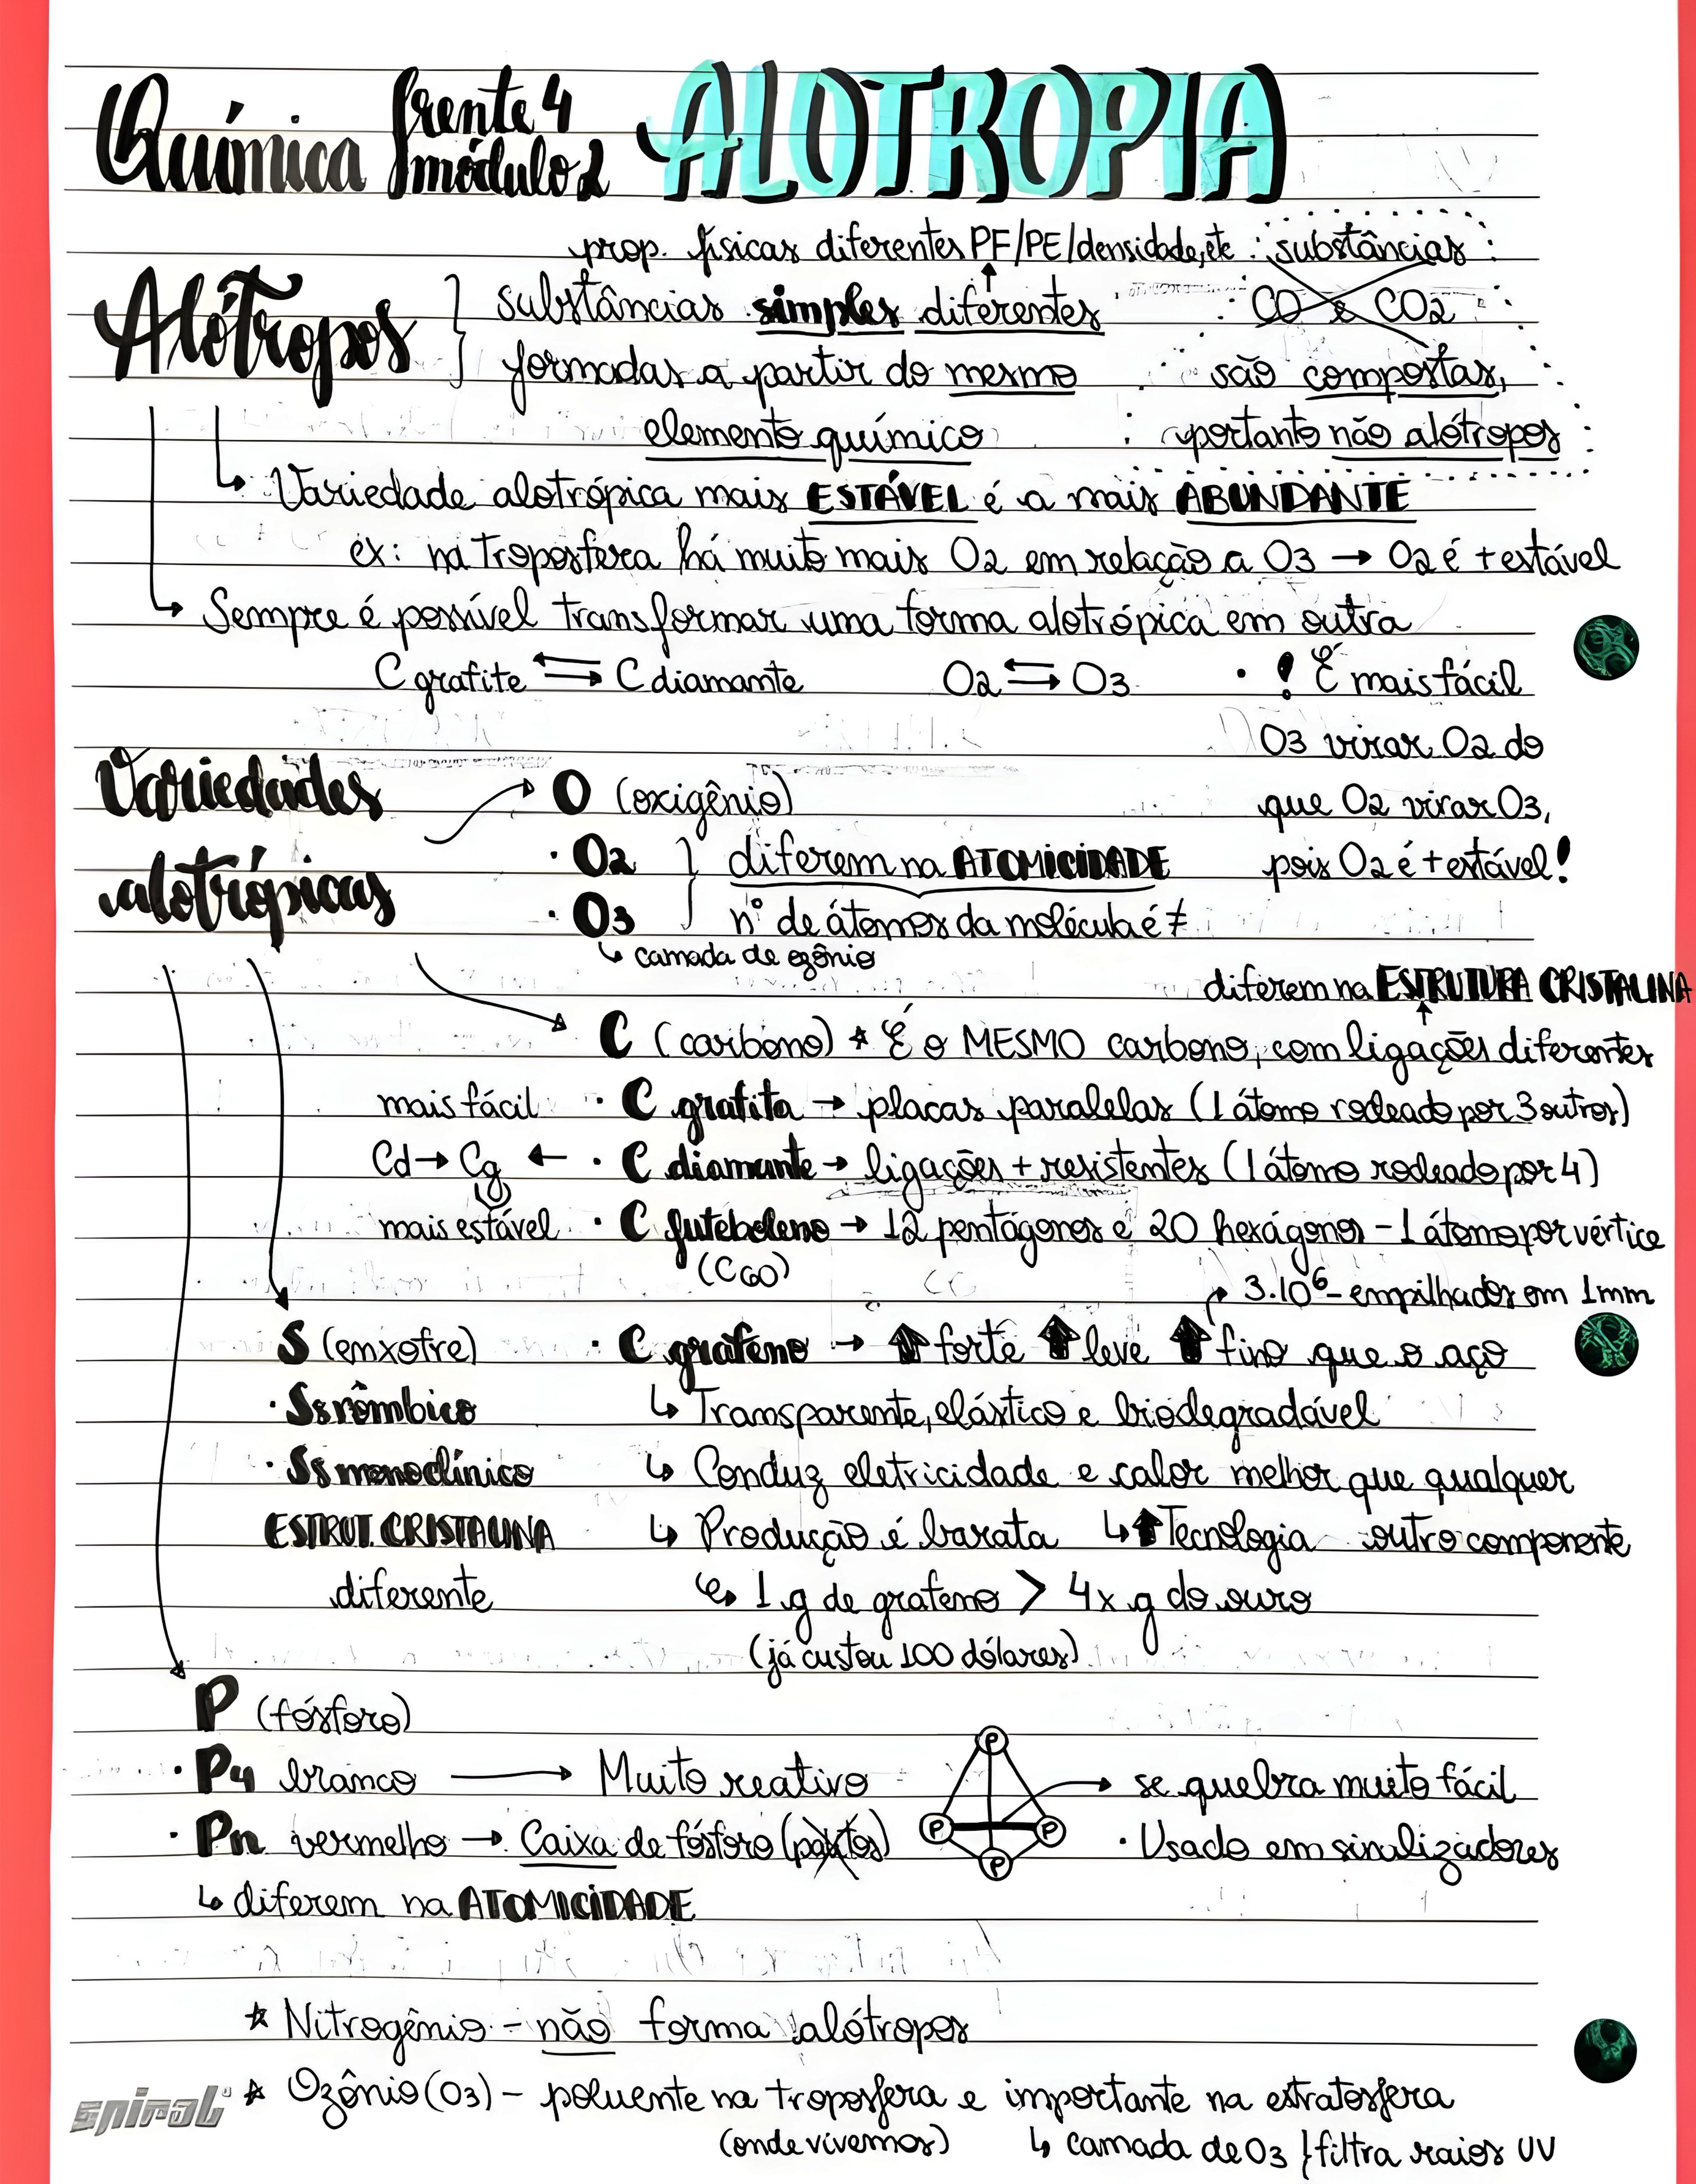 Química frente 4 módulo 2 ALOTROPIA
prop. físicas diferentes PF/PE/densidade, etc
Alótropos } substâncias simples diferentes
formadas a partir do mesmo
elemento químico
substâncias
CO e CO2
são compostas,
portanto não alótropos
↳ Variedade alotrópica mais ESTÁVEL é a mais ABUNDANTE
ex: na troposfera há muito mais O2 em relação a O3 → O2 é + estável
↳ Sempre é possível transformar uma forma alotrópica em outra
C grafite ⇆ C diamante O2 ⇆ O3
· ! É mais fácil
O3 virar O2 do
que O2 virar O3,
pois O2 é + estável!
Variedades
alotrópicas
O (oxigênio)
· O2 } diferem na ATOMICIDADE
· O3 nº de átomos da molécula é ≠
↳ camada de ozônio
diferem na ESTRUTURA CRISTALINA
C (carbono) * É o MESMO carbono, com ligações diferentes
· C grafita → placas paralelas (1 átomo rodeado por 3 outros)
· C diamante → ligações + resistentes (1 átomo rodeado por 4)
mais fácil
Cd → Cg ←
mais estável
· C futeboleno → 12 pentágonos e 20 hexágonos - 1 átomo por vértice
(C60)
3.10⁶ - empilhados em 1mm
· C grafeno → ⬆ forte ⬆ leve ⬆ fino que o aço
↳ Transparente, elástico e biodegradável
↳ Conduz eletricidade e calor melhor que qualquer
outro componente
↳ Produção é barata ↳ ⬆ Tecnologia
↳ 1 g de grafeno > 4x g do ouro
(já custou 100 dólares)
S (enxofre)
· S8 rômbico
· S8 monoclínico
ESTRUT. CRISTALINA
diferente
P (fósforo)
· P4 branco → Muito reativo
P
P P
P
→ se quebra muito fácil
· Usado em sinalizadores
· Pn vermelho → Caixa de fósforo (palitos)
↳ diferem na ATOMICIDADE
* Nitrogênio - não forma alótropos
* Ozônio (O3) - poluente na troposfera e importante na estratosfera
(onde vivemos) ↳ camada de O3 } filtra raios UV
spiral